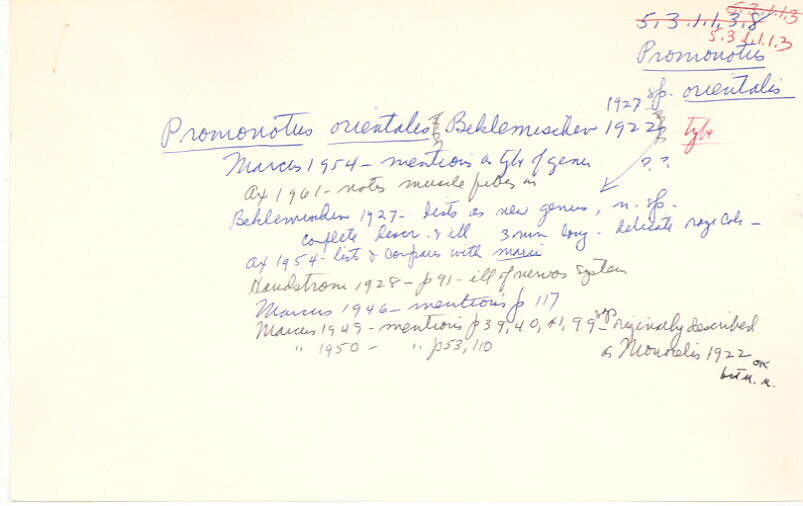 5.3.1.1.3
5.3.1.1.3.8
5.3.1.1.3
Promonotus
sp. orientalis
1927
Promonotus orientalis Beklemischev 1922 type
Marcus 1954 - mentions as type of genus ? ?
Ax 1961 - notes muscle fibers in
Beklemischev 1927 - lists as new genus, n. sp.
complete descr. & ill 3 mm long - delicate rose color -
Ax 1954 - lists & compares with marci
Handstrom 1928 - p 91 - ill of nervos system
Marcus 1946 - mentions p 117
Marcus 1949 - mentions p 39, 40, 41, 99 - says originally described
" 1950 - " p 53, 110 as Monocelis 1922 OK
but n. n.